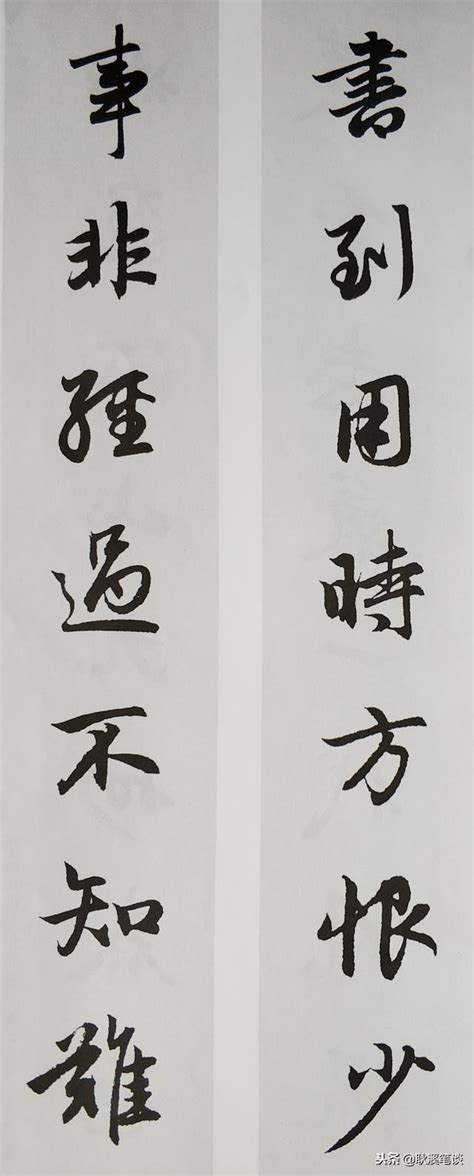 書到用時方恨少
事非經過不知難
头条@耿溪笔谈